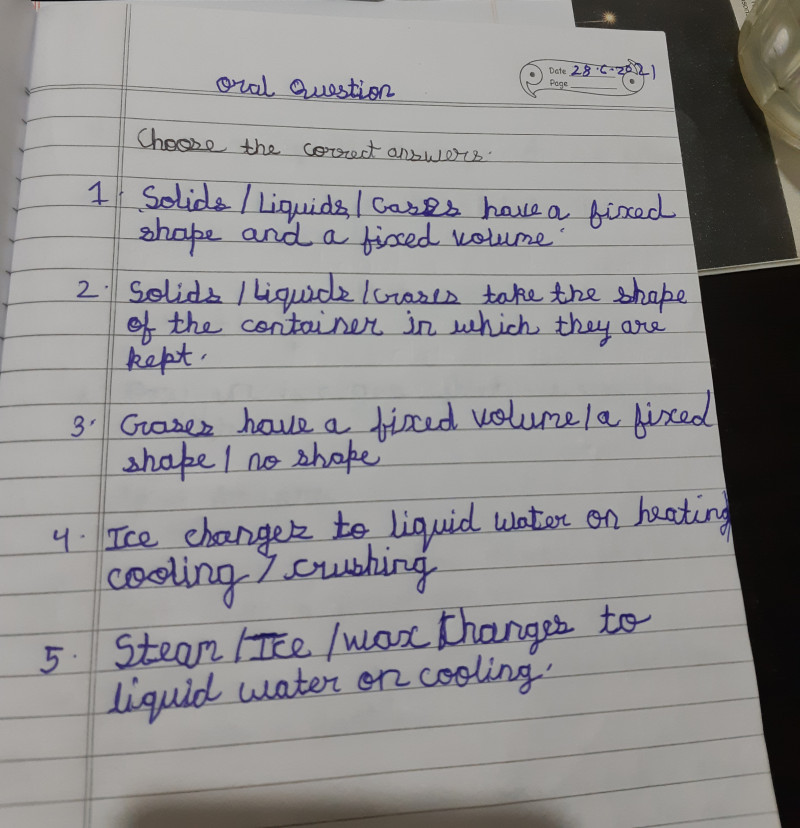 Date 28.6.2021
Page
Oral Question
Choose the correct answers.
1. Solids / Liquids / Gases have a fixed
shape and a fixed volume.
2. Solids / Liquids / Gases take the shape
of the container in which they are
kept.
3. Gases have a fixed volume / a fixed
shape / no shape
4. Ice changes to liquid water on heating
cooling / crushing
5. Steam / Ice / wax changes to
liquid water on cooling.